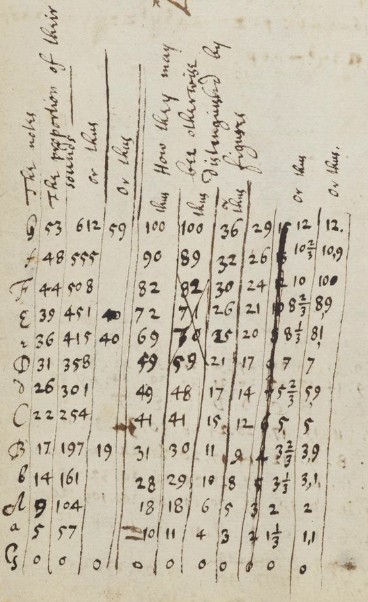 The notes
The proportion of their
sounds
or thus
Or thus
How they may
bee otherwise
distinguished by
figures
thus
thus
thus
or thus
Or thus.
G 53 612 59 100 100 36 29 12 12.
f 48 555 90 89 32 26 10 2/3 10,9
F 44 508 82 82 30 24 10 100
E 39 451 72 71 26 21 8 2/3 8,9
e 36 415 40 69 70 25 20 8 8 1/3 8,1
D 31 358 59 59 21 17 7 7
d 26 301 49 48 17 14 5 2/3 5,9
C 22 254 41 41 15 12 5, 5,
B 17 197 19 31 30 11 9 3 2/3 3,9
b 14 161 28 29 10 8 5 3 1/3 3,1,
A 9 104 18 18 6 5 3 2 2
a 5 57 10 11 4 3 2 1 1/3 1,1
G 0 0 0 0 0 0 0 0 0 0